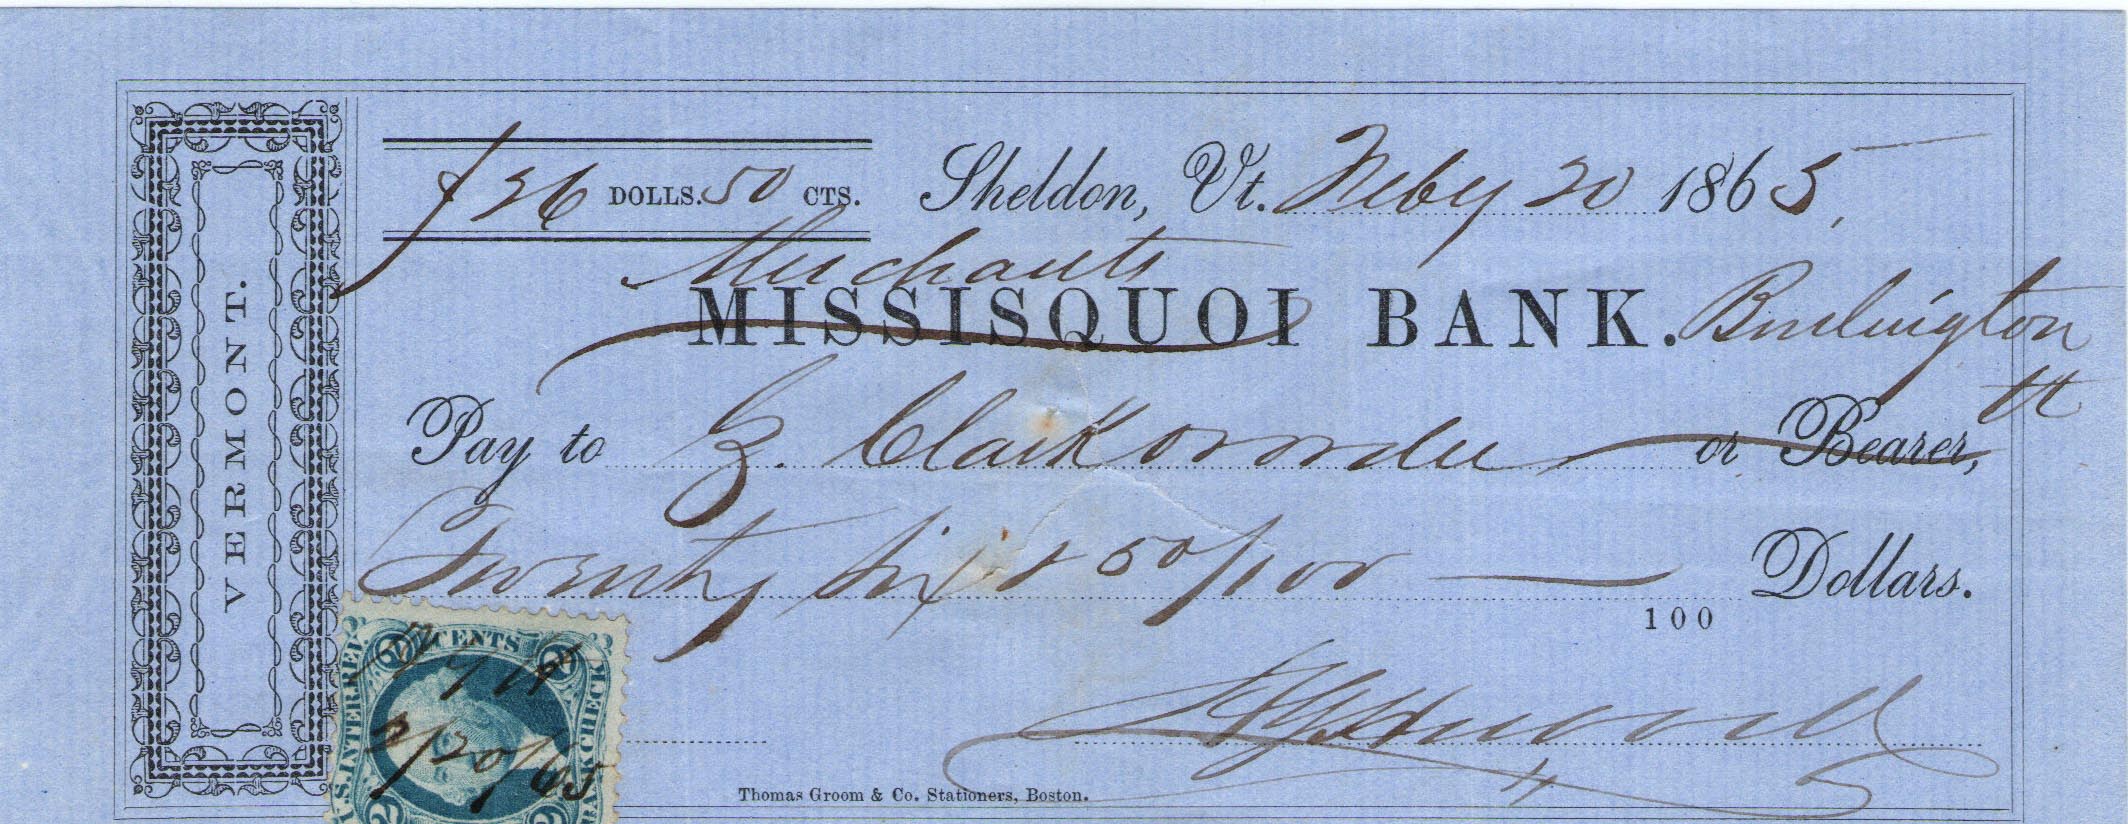 VERMONT.
$26 DOLLS. 50 CTS. Sheldon, Vt. Feby 20 1865,
Merchants
MISSISQUOI BANK. Burlington
Vt
Pay to Z. Clark or order or Bearer,
Twenty six & 50/100 Dollars.
100
2 CENTS 2
U.S. INTER. REV.
BANK CHECK
2/20/65
2 2
Thomas Groom & Co. Stationers, Boston.